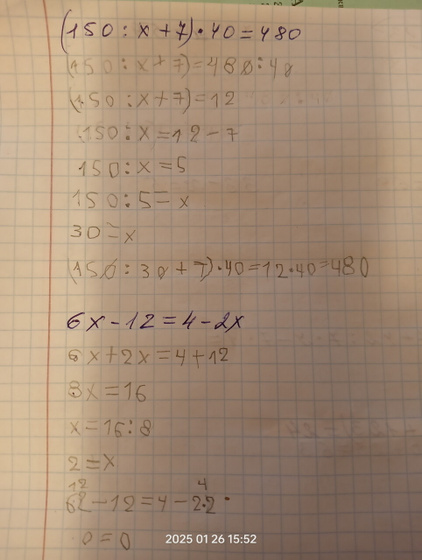 (150 : x + 7) · 40 = 480
(150 : x + 7) = 480 : 40
(150 : x + 7) = 12
150 : x = 12 - 7
150 : x = 5
150 : 5 = x
30 = x
(150 : 30 + 7) · 40 = 12 · 40 = 480
6x - 12 = 4 - 2x
6x + 2x = 4 + 12
8x = 16
x = 16 : 8
2 = x
12 4
62 - 12 = 4 - 2·2
0 = 0
2025 01 26 15:52